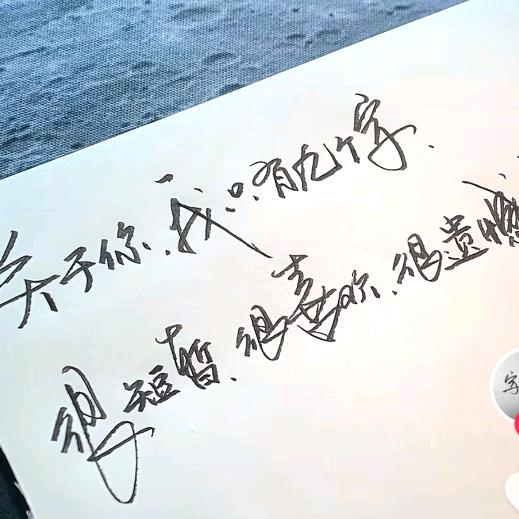 关于你,我只有九个字.
很短暂,很喜欢,很遗憾
字